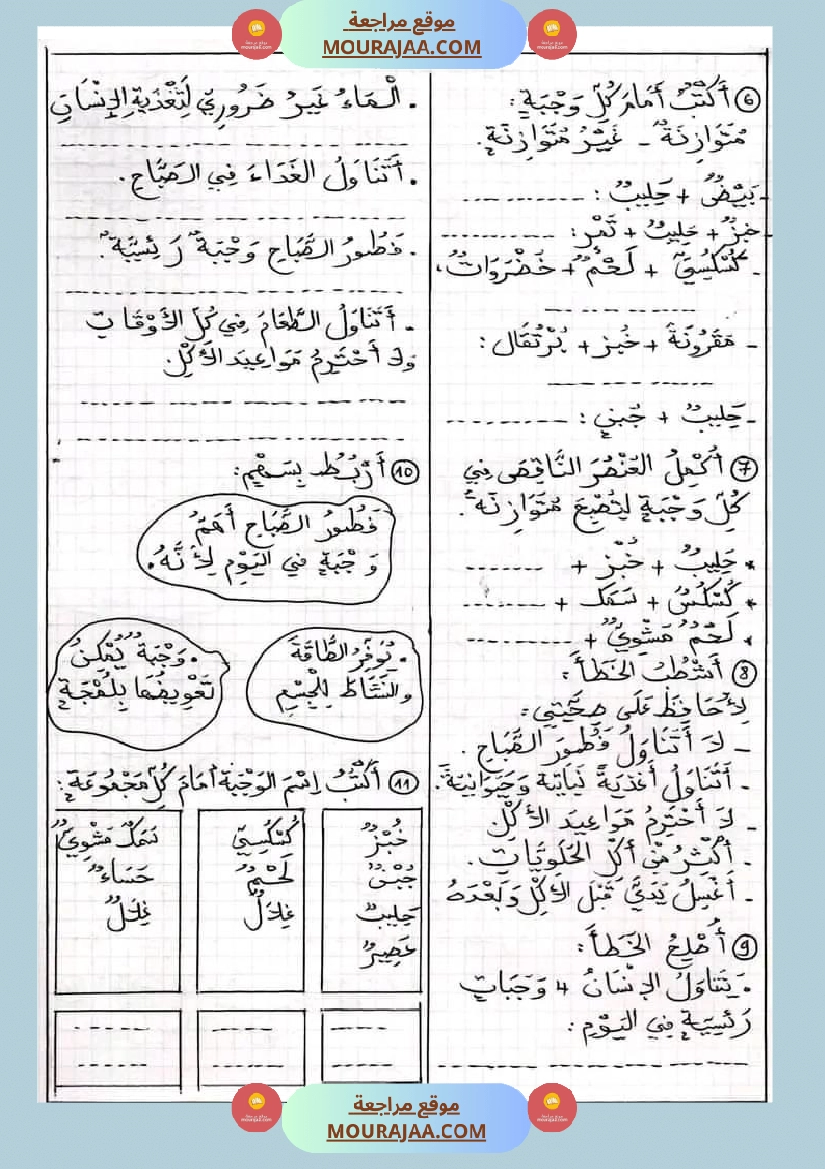 موقع مراجعة
MOURAJAA.COM
⑥ أَكْتُبُ أَمَامَ كُلِّ وَجْبَةٍ:
مُتَوَازِنَةٌ - غَيْرُ مُتَوَازِنَةٍ.
- بَيْضٌ + حَلِيبٌ : ----------
- خبزٌ + حَلِيبٌ + تَمْرٌ: ----------
- كُسْكُسِيٌّ + لَحْمٌ + خُضْرَوَاتٌ،
----------
- مَقَرُونَةٌ + خُبز + بُرْتُقَال :
----------
- حَلِيبٌ + جُبنٍ : ----------
⑦ أُكْمِلُ العُنْصُرَ النَّاقِصَ فِي
كُلِّ وَجْبَةٍ لِتُصْبِحَ مُتَوَازِنَةً.
* حَلِيبٌ + خُبْز + -------
* كُسْكُسٌ + سَمَك + -------
* لَحْمٌ مَشْوِيٌّ + ----------
⑧ أَشْطُبُ الخَطَأَ:
لِأُحَافِظَ عَلَى صِحَّتِي:
- لَا أَتَنَاوَلُ فَطُورَ الصَّبَاحِ.
- أَتَنَاوَلُ أَغْذِيَةً نَبَاتِيّة وَحَيَوَانِيّةً.
- لَا أَحْتَرِمُ مَوَاعِيدَ الأَكْلِ
- أُكْثِرُ مِنْ أَكْلِ الحَلَوِيَّاتِ.
- أَغْسِلُ يَدَيَّ قَبْلَ الأَكْلِ وَبَعْدَهُ
⑨ أُصْلِحُ الخَطَأَ:
- يَتَنَاوَلُ الإِنْسَانُ 4 وَجَبَاتٍ
رَئِسِيّةٍ فِي اليَوْمِ :
----------
. الْمَاءُ غَيْرُ ضَرُورِيٍّ لِتَغْذِيَةِ الإِنْسَانِ
----------
. أَتَنَاوَلُ الغَدَاءَ فِي الصَّبَاحِ.
----------
. فَطُورُ الصَّبَاحِ وَجْبَةٌ رَئِسِيَّةٌ.
----------
. أَتَنَاوَلُ الطَّعَامَ فِي كُلِّ الأَوْقَاتِ
وَلَا أَحْتَرِمُ مَوَاعِيدَ الأَكْلِ
----------
----------
⑩ أَرْبُطُ بِسَهْمٍ:
فَطُورُ الصَّبَاحِ أَهَمُّ
وَجْبَةٍ فِي اليَوْمِ لِأَنَّهُ.
. يُوَفِّرُ الطَّاقَةَ
والنَشَاطَ لِلْجِسْمِ
. وَجْبَةٌ يُمْكِنُ
تَعْوِيضُهَا بِلُمْجَةٍ
⑪ أَكْتُبُ اِسْمَ الوَجْبَةِ أَمَامَ كُلِّ مَجْمُوعَةٍ:
خُبْزٌ
جُبْنٌ
حَلِيبٌ
عَصِيرٌ
كُسْكُسِيّ
لَحْمٌ
غِلَالٌ
سَمَكٌ مَشْوِيٌّ
حَسَاءٌ
غِلَالٌ
-----
-----
-----
-----
-----
-----
موقع مراجعة
MOURAJAA.COM